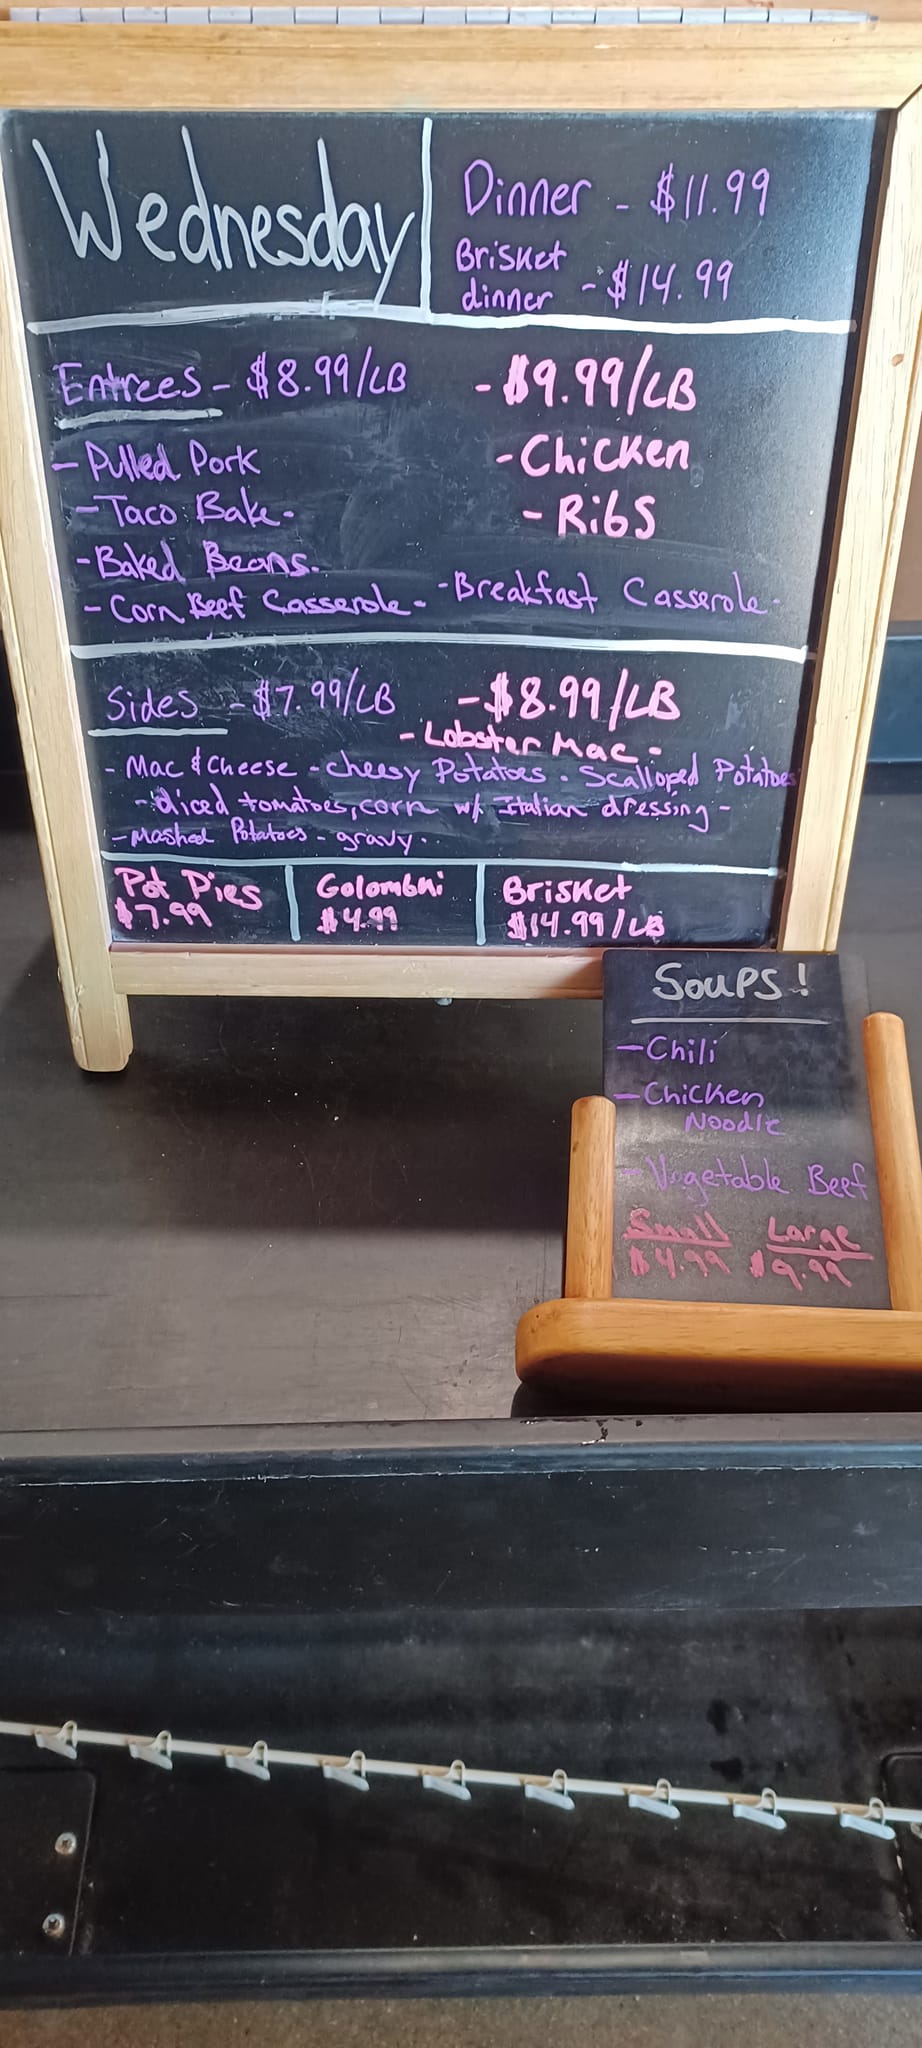 Wednesday
Dinner - $11.99
Brisket
dinner - $14.99
Entrees - $8.99/LB
- Pulled Pork
- Taco Bake -
- Baked Beans.
- Corn Beef Casserole -
- $9.99/LB
- Chicken
- Ribs
- Breakfast Casserole -
Sides - $7.99/LB
- $8.99/LB
- Lobster Mac -
- Mac & Cheese - cheesy Potatoes - Scalloped Potatoes
- diced tomatoes, corn w/ Italian dressing -
- Mashed Potatoes - gravy -
Pot Pies
$7.99
Golombki
$4.99
Brisket
$14.99/LB
Soups!
- Chili
- Chicken
Noodle
- Vegetable Beef
Small Large
$4.99 $9.99